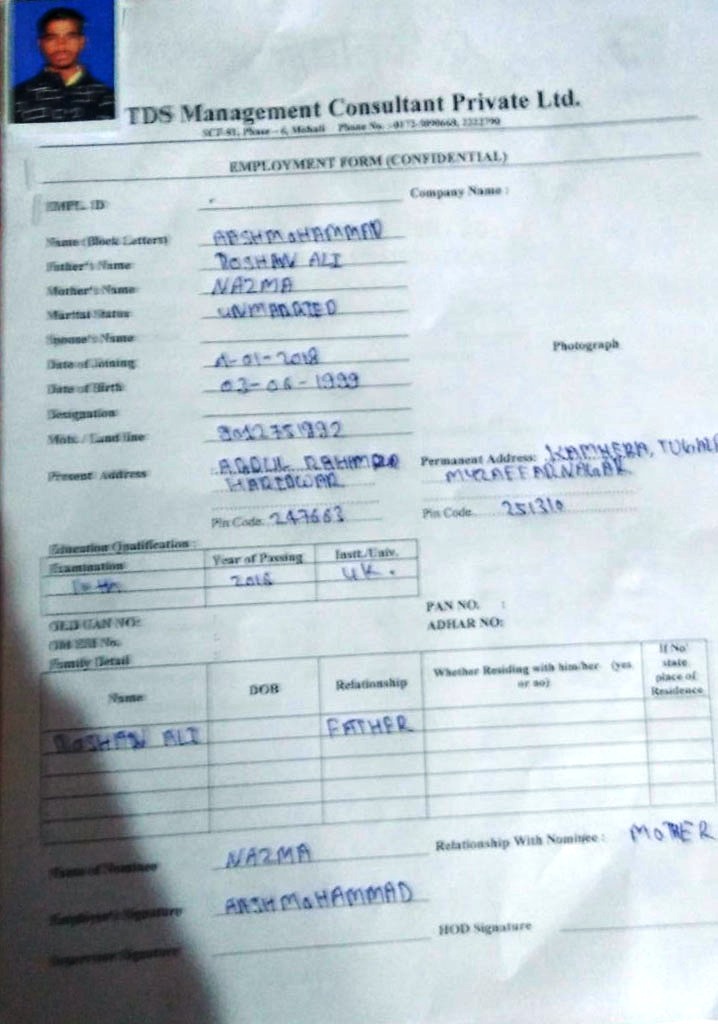 TDS Management Consultant Private Ltd.
SCF-81, Phase - 6, Mohali Phone No. :-0172-5090668, 2222790
EMPLOYMENT FORM (CONFIDENTIAL)
EMPL. ID
Company Name :
Name (Block Letters) AASHMOHAMMAD
Father's Name ROSHAN ALI
Mother's Name NAZMA
Marital Status UNMARRIED
Spouse's Name
Photograph
Date of Joining 4-01-2018
Date of Birth 03-06-1999
Designation
Mob. / Land line 9012751992
Present Address ABDUL
HARIDWAR
Permanent Address: KAMHERA,
MUZAFFARNAGAR
Pin Code. 247663
Pin Code. 251310
Education Qualification :
Examination Year of Passing Instt./Univ.
UK.
PAN NO. :
ADHAR NO:
Family Detail
Name DOB Relationship Whether Residing with him/her (yes or no) If No' state place of Residence
ROSHAN ALI FATHER
Name of Nominee NAZMA Relationship With Nominee : MOTHER
Employee's Signature AASHMOHAMMAD
Supervisor Signature HOD Signature